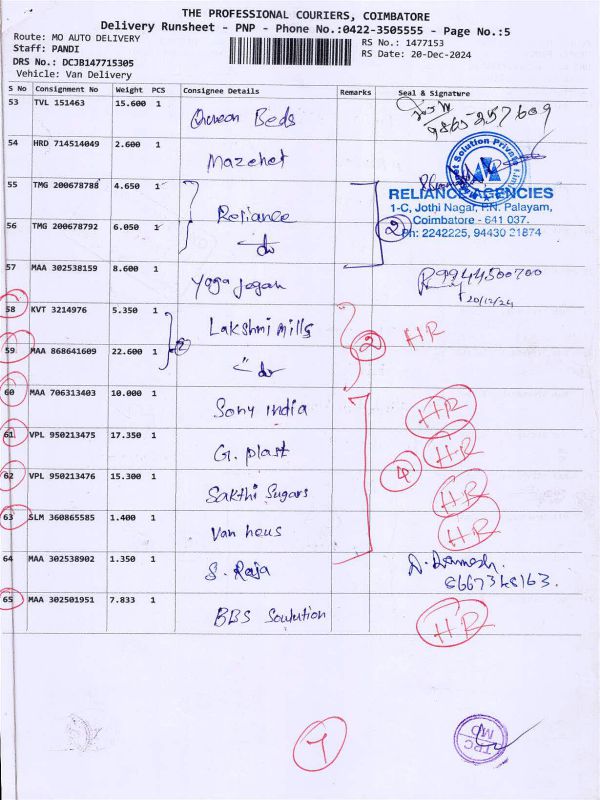 THE PROFESSIONAL COURIERS, COIMBATORE
Delivery Runsheet - PNP - Phone No.:0422-3505555 - Page No.:5
Route: MO AUTO DELIVERY RS No.: 1477153
Staff: PANDI RS Date: 20-Dec-2024
DRS No.: DCJB147715305
Vehicle: Van Delivery
S No Consignment No Weight PCS Consignee Details Remarks Seal & Signature
53 TVL 151463 15.600 1 Beds
54 HRD 714514049 2.600 1
55 TMG 200678788 4.650 1 Reliance 2
RELIANCE AGENCIES
1-C, Jothi Nagar, P.N. Palayam,
Coimbatore - 641 037.
Ph: 2242225, 94430 21874
56 TMG 200678792 6.050 1 do
57 MAA 302538159 8.600 1 Yoga Jegan 9944500700
20/12/24
58 KVT 3214976 5.350 1 Lakshmi mills 2 HR
59 MAA 868641609 22.600 1 do
60 MAA 706313403 10.000 1 Sony india HR
61 VPL 950213475 17.350 1 G. plast 4 HR
62 VPL 950213476 15.300 1 Sakthi Sugars HR
63 SLM 360865585 1.400 1 Van heus HR
64 MAA 302538902 1.350 1 S. Raja
65 MAA 302501951 7.833 1 BBS Soulution HR
7
TPC
MO